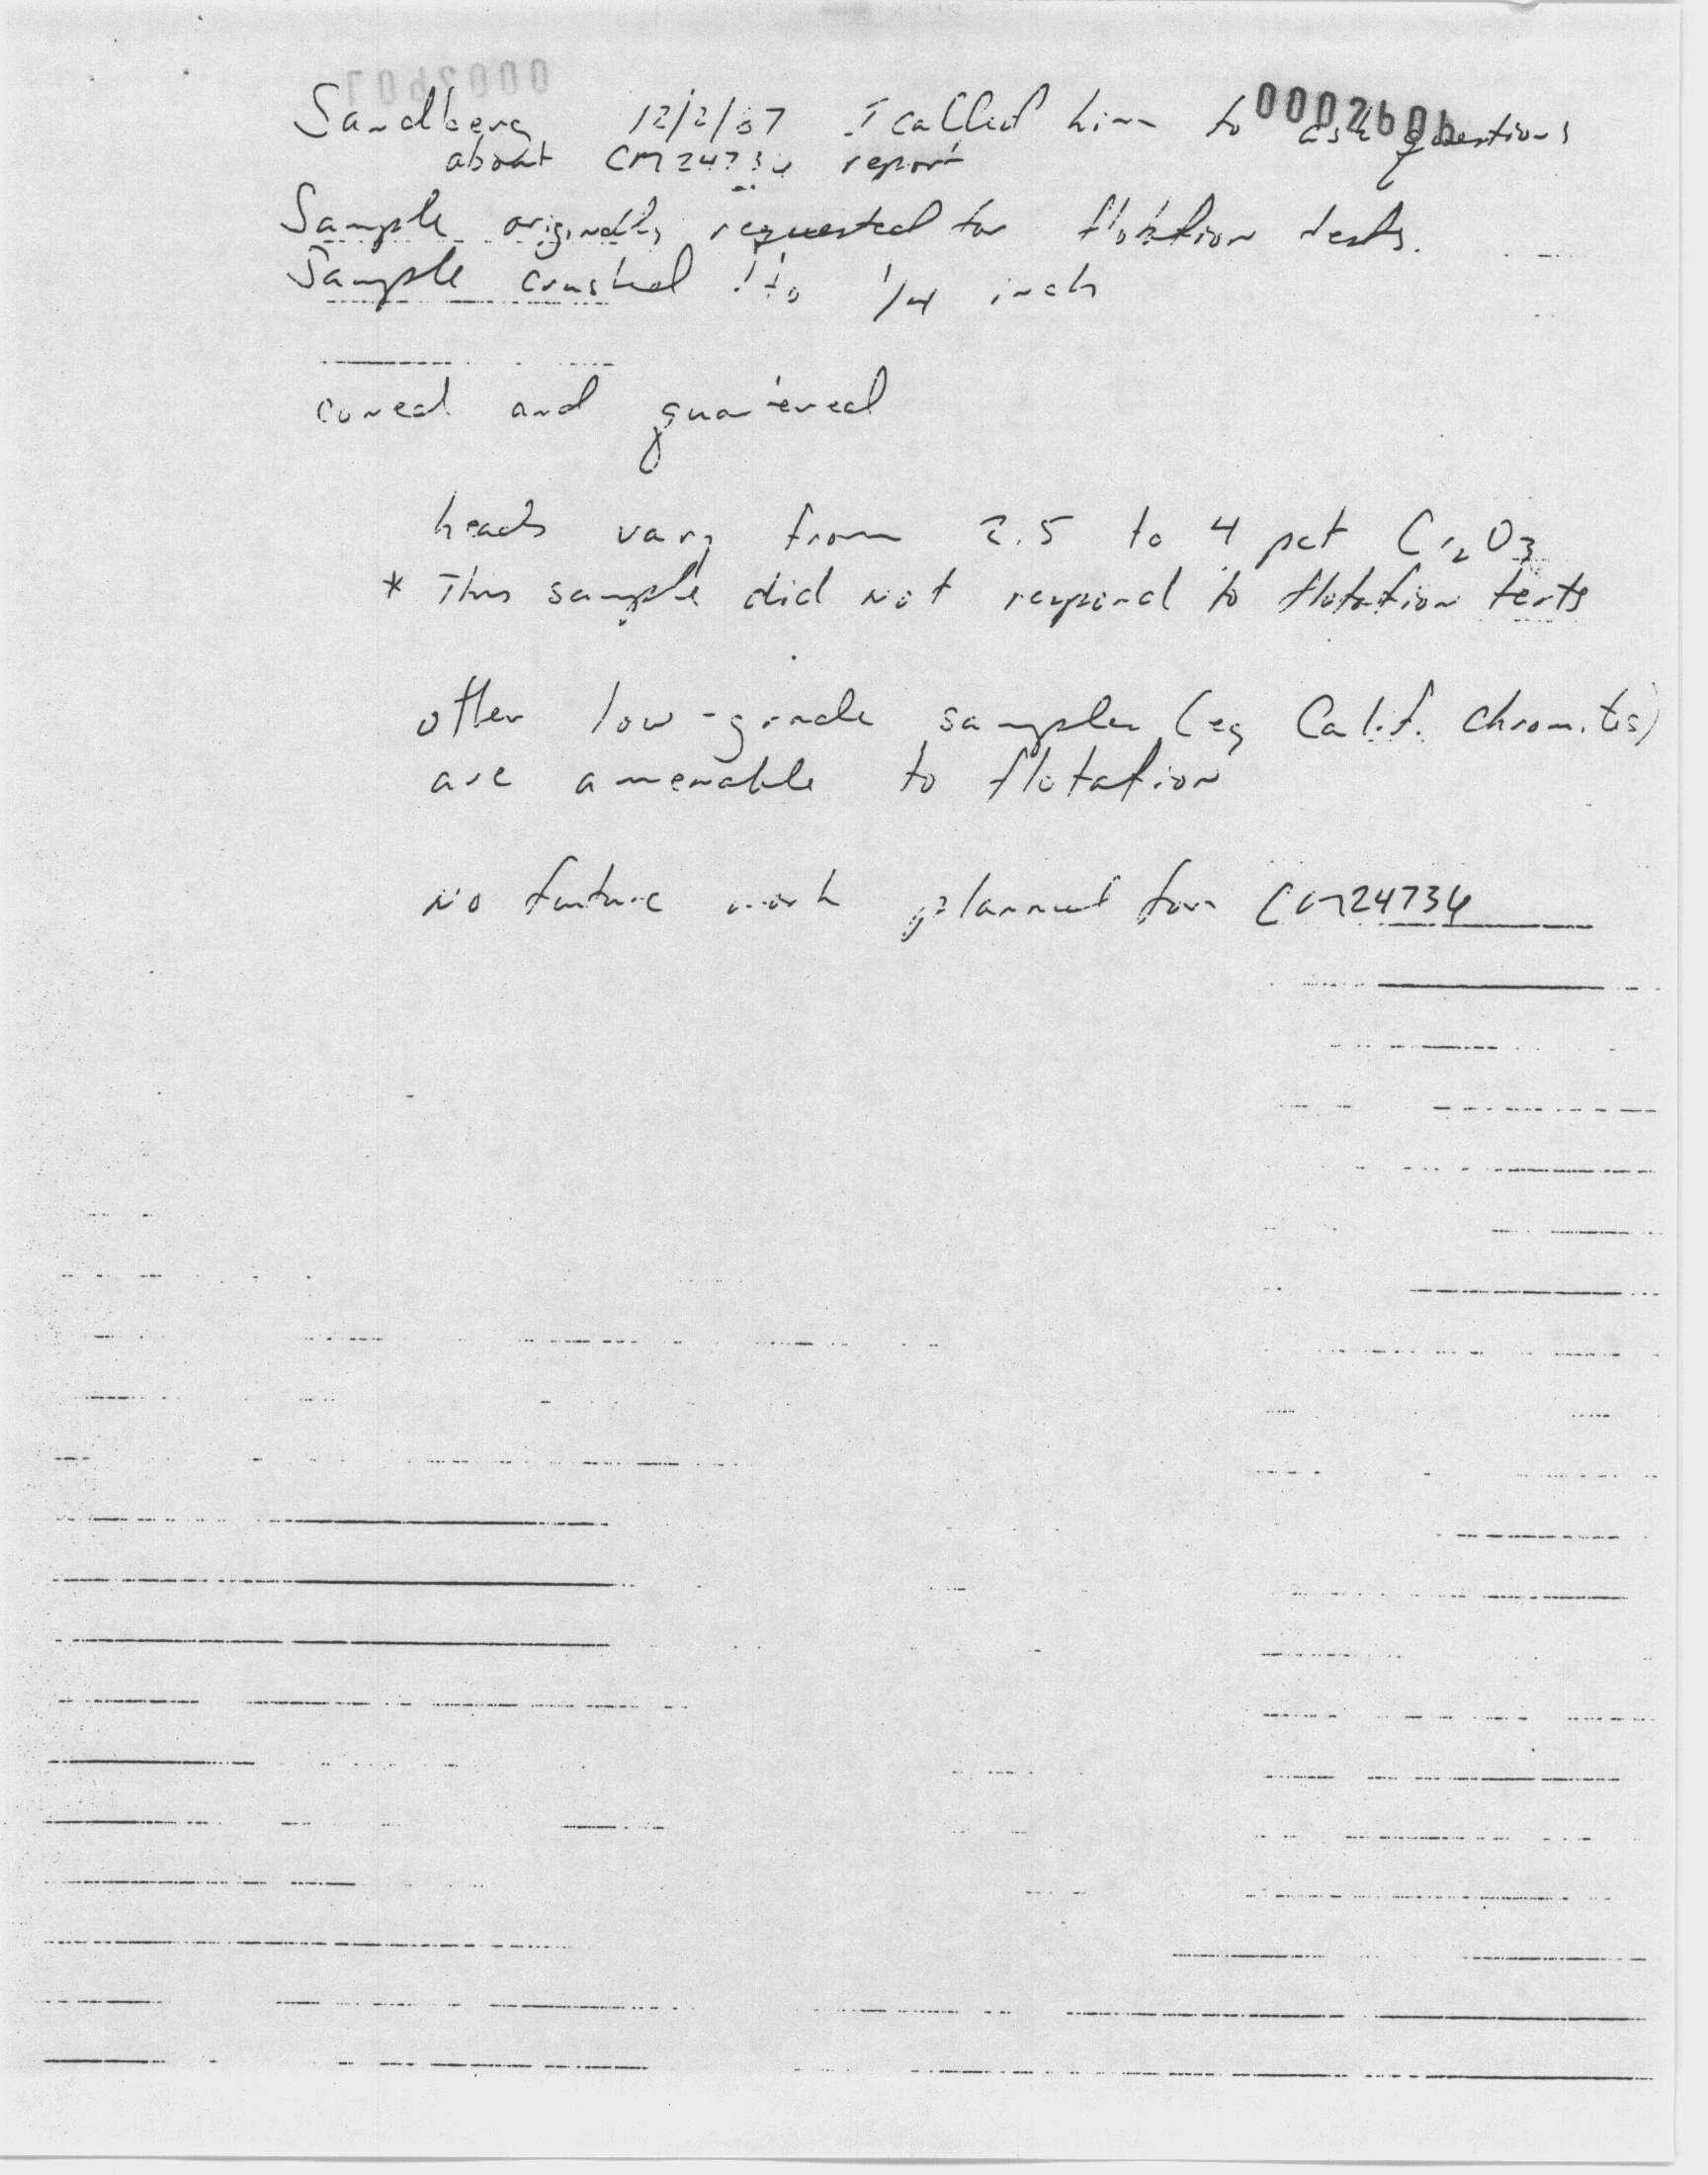 0002606
Sandberg 12/2/87 I called him to ask questions
about CM24736 report
Sample originally requested for flotation tests.
Sample crushed to 1/4 inch
coned and quartered
heads vary from 2.5 to 4 pct Cr2O3
* This sample did not respond to flotation tests
other low-grade samples (eg Calif. chromites)
are amenable to flotation
No future work planned for CM24736